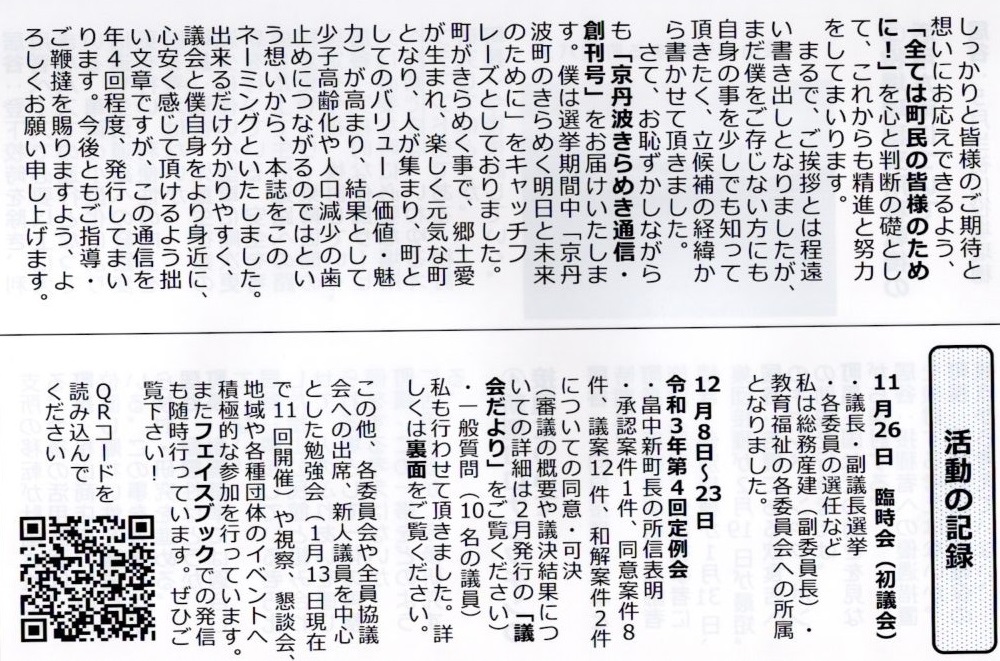 しっかりと皆様のご期待と
想いにお応えできるよう、
「全ては町民の皆様のため
に！」を心と判断の礎とし
て、これからも精進と努力
をしてまいります。
まるで、ご挨拶とは程遠
い書き出しとなりましたが、
まだ僕をご存じない方にも
自身の事を少しでも知って
頂きたく、立候補の経緯か
ら書かせて頂きました。
さて、お恥ずかしながら
も「京丹波きらめき通信・
創刊号」をお届けいたしま
す。僕は選挙期間中「京丹
波町のきらめく明日と未来
のために」をキャッチフ
レーズとしておりました。
町がきらめく事で、郷土愛
が生まれ、楽しく元気な町
となり、人が集まり、町と
してのバリュー（価値・魅
力）が高まり、結果として
少子高齢化や人口減少の歯
止めにつながるのではとい
う想いから、本誌をこの
ネーミングといたしました。
議会と僕自身をより身近に、
出来るだけ分かりやすく、
心安く感じて頂けるよう拙
い文章ですが、この通信を
年４回程度、発行してまい
ります。今後ともご指導
ご鞭撻を賜りますよう、よ
ろしくお願い申し上げます。
活動の記録
11月26日 臨時会（初議会）
・議長、副議長選挙
・各委員の選任など
私は総務産建（副委員長）・
教育福祉の各委員会への所属
となりました。
12月8日～23日
令和３年第４回定例会
・畠中新町長の所信表明
・承認案件１件、同意案件８
件、議案12件、和解案件２件
についての同意・可決
（審議の概要や議決結果につ
いての詳細は２月発行の「議
会だより」をご覧ください）
・一般質問（10名の議員）
私も行わせて頂きました。詳
しくは裏面をご覧ください。
この他、各委員会や全員協議
会への出席、新人議員を中心
とした勉強会（1月13日現在
で11回開催）や視察、懇談会、
地域や各種団体のイベントへ
積極的な参加を行っています。
またフェイスブックでの発信
も随時行っています。ぜひご
覧下さい。
QRコードを
読み込んで
ください